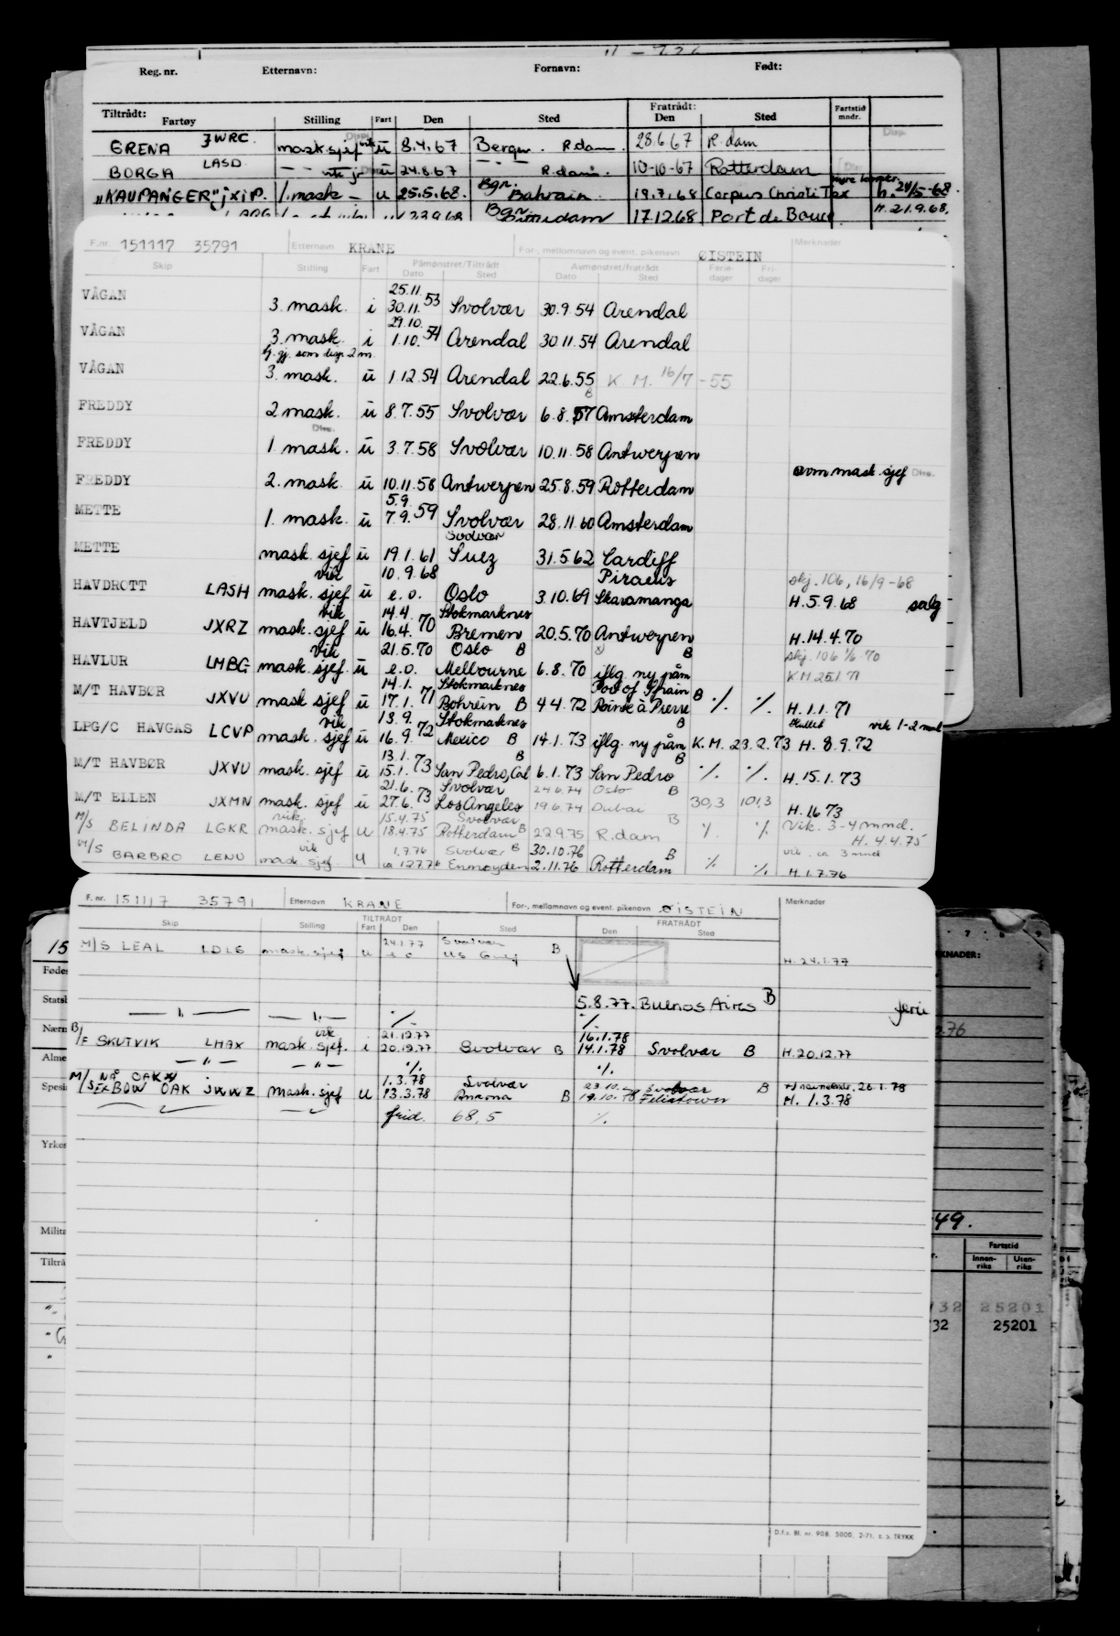 Reg. nr. Etternavn: Fornavn: Født:
Tiltrådt: Fratrådt: Fartstid mndr.
Fartøy Stilling Fart Den Sted Den Sted
GRENA JWRC mask sjef vik ü 8.4.67 Bergen. R.dam. 28.6.67 R.dam Disp.
BORGA LASD — — — vik ü 24.8.67 — " — R.dam. 10-10-67 Rotterdam
"KAUPANGER" jXIP. 1. mask — u 25.5.68. Bgn. Bahrain 19.7.68 Corpus Christi Tex h. 24/5-68.
23.9.68 Bgn. 17.12.68 Port de Bouc H. 21.9.68.
F.nr. 151117 35791 Etternavn KRANE For-, mellomnavn og event. pikenavn ØISTEIN Merknader
Skip Stilling Fart Påmønstret/Tiltrådt Dato Sted Avmønstret/fratrådt Dato Sted Feriedager Fridager
VÅGAN 3. mask. i 25.11. 30.11. 53 Svolvær 30.9.54 Arendal
VÅGAN 3. mask. i 29.10. 1.10. 54 Arendal 30.11.54 Arendal
tj. gj. som disp. 2 m.
VÅGAN 3. mask. ü 1.12.54 Arendal 22.6.55 K M. 16/7 - 55
FREDDY 2 mask. ü 8.7.55 Svolvær 6.8.57 B Amsterdam
FREDDY Disp. 1 mask. ü 3.7.58 Svolvær 10.11.58 Antwerpen
FREDDY 2. mask. ü 10.11.58 Antwerpen 25.8.59 Rotterdam som mask. sjef Disp.
METTE 1. mask. ü 5.9. 7.9. 59 Svolvær 28.11.60 Amsterdam
METTE mask. sjef ü 19.1.61 Svolvær Suez 31.5.62 Cardiff
HAVDROTT LASH mask. sjef vik ü 10.9.68 e.o. Oslo 3.10.69 Piraeus Skaramanga skj. 106, 16/9-68 H. 5.9.68 salg
HAVTJELD JXRZ mask. sjef vik ü 14.4. 16.4. 70 Stokmarknes Bremen 20.5.70 Antwerpen H. 14.4.70
HAVLUR LMBG mask. sjef vik ü 21.5.70 e.o. Oslo B Melbourne 6.8.70 iflg. ny påm B skj. 106 1/6-70 KM 25.1.71
M/T HAVBØR JXVU mask sjef ü 14.1. 17.1. 71 Stokmarknes Bohrein B 4.4.72 Port of Spain Pointe à Pierre B ./. ./. H. 1.1.71
LPG/C HAVGAS LCVP mask. sjef vik ü 13.9. 16.9. 72 Stokmarknes Mexico B 14.1.73 iflg. ny påm B K.M. 23.2.73 H. 8.9.72 vik 1-2 mnd
M/T HAVBØR JXVU mask. sjef ü 13.1. 15.1. 73 San Pedro, Cal B 6.1.73 San Pedro B ./. ./. H. 15.1.73
M/T ELLEN JXMN mask. sjef ü 21.6. 27.6. 73 Svolvær Los Angeles 24.6.74 19.6.74 Oslo B Dubai 30,3 101,3 H. 1.6 73
M/S BELINDA LGKR mask. sjef vik u 15.4.75 18.4.75 Svolvær Rotterdam B 22.9.75 R.dam B ./. ./. Vik. 3-4 mnd. H. 4.4.75
M/S BARBRO LENU mask. sjef. vik u 1.7.76 ca 12.7.76 Svolvær B 30.10.76 2.11.76 Rotterdam B ./. ./. vik. ca 3 mnd H. 1.7.76
F. nr. 151117 35791 Etternavn KRANE For-, mellomnavn og event. pikenavn ØISTEIN Merknader
TILTRÅDT FRATRÅDT
Skip Stilling Fart Den Sted Den Sted
M/S LEAL LDLG mask. sjef u 24.1.77 e o Svolvær US Gulf B H. 24.1.77
— " — — " — ./. 5.8.77. Buenos Aires B ferie
B/F SKUTVIK LHAX mask. sjef. vik i 21.12.77 20.12.77 Svolvær B 16.1.78 14.1.78 Svolvær B H. 20.12.77
— " — — " — ./. ./.
M/S EX BOW OAK NÅ OAK JWWZ mask. sjef u 1.3.78 13.3.78 Svolvær Ancona B 23.10. 19.10.78 Svolvær B Filistower H. 1.3.78
frid. 68,5 ./.
D.f.s. Bl. nr. 908. 5000, 2-71. s. s. TRYKK
15
Føde
Statsb
Nærm
Alme
Spesi
Yrke
Milit
Tiltrå
7 8 9
KNADER:
2-76
49.
Fartstid
Innenriks Utenriks
732 25201
32 25201